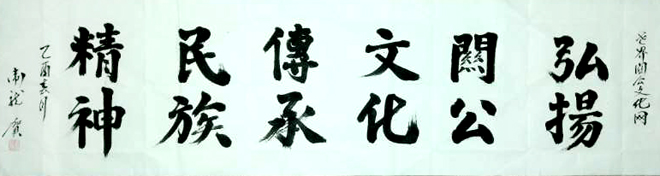 世界関公文化网
弘揚
關公
文化
傳承
民族
精神
乙酉春月